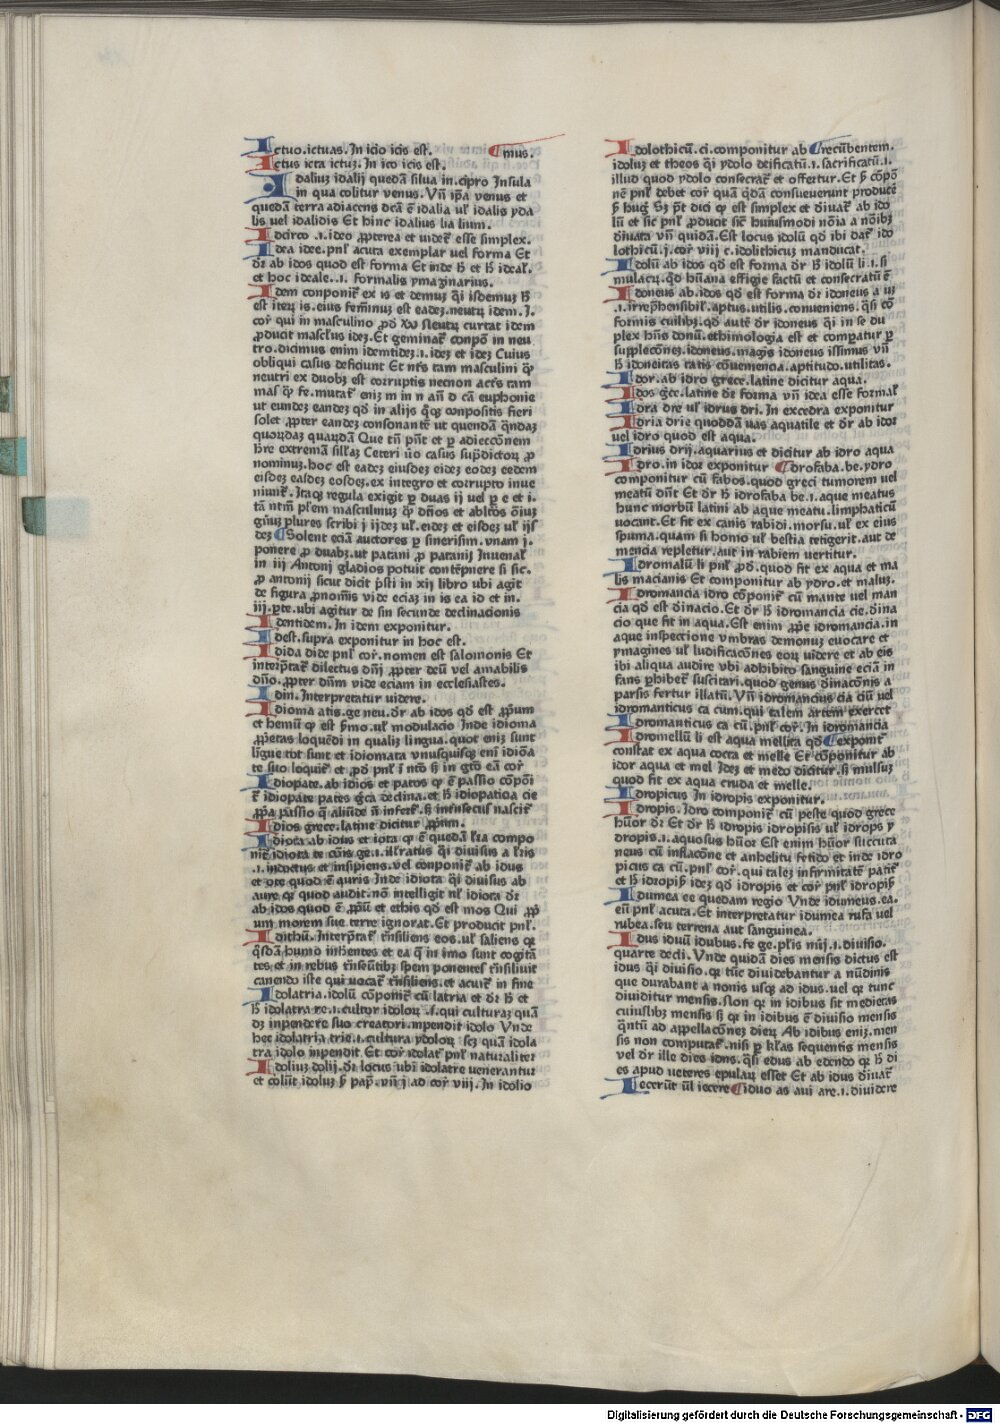 Ictuo.ictuas. In icio icis est. ¶mus.
Ictus icta ictuꝫ. In ico icis est.
Idaliuꝫ idalij quedā silua in.cipro Insula
in qua colitur venus. Vñ ip̄a venus et
quedā terra adiacens dcā ē idalia ul̓ idalis yda
lis vel idalidis Et hinc idalius lia lium.
Idcirco .i. ideo ꝓpterea et uidet̓ esse simplex.
Idea idee. pnl̓ acuta exemplar vel forma Et
dr̄ ab idos quod est forma Et inde h̄ et h̄ ideal̓.
et hoc ideale. .i. formalis ymaginarius.
Idem conponit̓ ex is et demuꝫ q̄i isdemuꝫ h̄
est iteꝝ is. eius feṁinuꝫ est eadeꝫ. neutꝝ idem. I.
cor̄ qui in masculino ꝓd̄ curtat idem
ꝓducit mascl̓us ideꝫ. Et geminat̓ conpō in neu
tro. dicimus enim idemtideꝫ .i. ideꝫ et ideꝫ Cuius
obliqui casus deficiunt Et nr̄s tam masculini qꝫ
neutri ex duobꝫ est corruptis necnon actr̄s tam
mas qꝫ fe. mutat̓ eniꝫ m in n añ d cā euphonie
ut eundeꝫ eandeꝫ qd̄ in alijs qꝫ conpositis fieri
solet ꝓpter eandeꝫ consonantē ut quendā qndaꝫ
quoꝝdaꝫ quaꝝdā Que tñ pñt et ꝑ adieccōnem
hr̄e extremā sill̓aꝫ Ceteri uō casus sup̄dictoꝝ ꝓ
nominuꝫ. hoc est eadeꝫ eiusdeꝫ eideꝫ eodeꝫ eedem
eisdeꝫ easdeꝫ eosdeꝫ. ex integro et corrupto inue
niunt̓. Itaqꝫ regula exigit ꝑ duas ij vel ꝑ e et i.
tā ntm̄ pl̓em masculinuꝫ qꝫ dños et abltōs ōiuꝫ
gñuꝫ plures scribi j ijdeꝫ ul̓. eideꝫ et eisdeꝫ ul̓ ijs
deꝫ ¶Solent eciā auctores ꝑ sinerisim. vnam j.
ponere ꝓ duabꝫ. ut patani ꝓ patanij Iuuenal̓
in iij Antonj gladios potuit contēpnere si sic.
ꝓ antonij sicut dicit p̄sti in xij libro ubi agit
de figura ꝓnoīs vide eciaꝫ in is ea id et in.
iij. ꝑte. ubi agitur de sin secunde declinacionis
Identidem. In idem exponitur.
Idest. supra exponitur in hoc est.
Idida dide pnl̓ cor̄. nomen est salomonis Et
interp̄tat̓ dilectus dñj ꝓpter deū vel amabilis
dño. ꝓpter dñm vide eciam in ecclesiastes.
Idin. Interpretatur uidere.
Idioma atis. ge neu. dr̄ ab idos qd̄ est ꝓpum
et hemū qꝫ est p̄mo. ul̓ modulacio Inde idioma
ꝓpetas loquēdi in qualiꝫ lingua. quot eniꝫ sunt
līgue tot sunt et idiomata vnusquisqꝫ enī idiōa
te suo loquit̓ et ꝓd̄ pnl̓ ī ntō sꝫ in gtō eā cor̄
Idiopate. ab idios et patos qꝫ ē passio cōpōi
t̓ idiopate pates gca declina. et h̄ idiopatica cie
ꝓpa passio q̄ aliūde ñ infert̓. sꝫ intrisecus nascit̓
Idios grece. latine dicitur ꝓpium.
Idiota ab idius et iota qꝫ ē quedā lr̄a compo
nit̓ idiota te cōis ge .i. ill̓ratus q̄i diuisus a lr̄is
.i. indoctus et insipiens. vel conponit̓ ab idus
et ote quod ē auris Inde idiota q̄i diuisus ab
aure qꝛ quod audit. nō intelligit ul̓ idiota dr̄
ab idos quod ē ꝓpu et ethis qd̄ est mos Qui ꝓp
um morem sue terre ignorat. Et producit pnl̓.
Idithū. Interp̄tat̓ tr̄nsiliens eos. ul̓ saliens qꝛ
q̄sdā humo inhētes et ea q̄ in imo sunt cogitā
tes et in rebus tr̄nseūtibꝫ spem ponentes tr̄nsiliuit
canendo iste qui uocat̓ tr̄nsiliens. et acuit̓ in fine
Idolatria. idolū cōponit̓ cū latria et dr̄ h̄ et
h̄ idolatra re .i. cultor idoloꝝ .s. qui culturaꝫ quā
dꝫ inpendere suo creatori. inpendit idolo Vnde
hec idolatria trie .i. cultura ydoloꝝ sꝫ quā idola
tra idolo inpendit. Et cor̄ idolat̓ pnl̓ naturaliter
Idoliuꝫ dolij. dr̄ locus ubi idolatre venerantur
et colūt idoluꝫ p̄ pap̄. vñ j ad cor̄ viij. In idolio
¶recūbentem.
Idolothicū. ci. componitur ab
idoluꝫ et theos q̄i ydolo deificatū .i. sacrificatū .i.
illud quod ydolo consecrat̓ et offertur. Et p̄ cōpō
nē pnl̓ debet cor̄ quā q̄dā consueuerunt producē
p̄ hug̓ Sꝫ pt̄ dici qꝫ est simplex et diuat̓ ab ido
lū et sic pnl̓ ꝓducit sic̄ huiusmodi nōia a nōibꝫ
diuata vñ quidā. Est locus idolū qd̄ ibi dat̓ ido
lothicū. j. cor̄ viij c. idolithicuꝫ manducat.
Idolū ab idos qd̄ est forma dr̄ h̄ idolū li .i. si
mulacꝝ. qd̄ hūana effigie factū et consecratū ē
Idoneus ab. idos qd̄ est forma dr̄ idoneus a uꝫ
.i. irrep̄hensibil̓. aptus. utilis. conueniens. q̄si cō
formis cuilibꝫ. qd̄ autē dr̄ idoneus q̄i in se du
plex hñs donū. ethimologia est et comꝑatur ꝑ
supplecōneꝫ. idoneus. magis idoneus issimus vñ
h̄ idoneitas tatis cōuenientia. aptitudo. utilitas.
Idor. ab idro grece. latine dicitur aqua.
Idos gc̄e. latine dr̄ forma vñ idea esse formal̓
Idra dre ul̓ idrus dri. In excedra exponitur
Idria drie quoddā uas aquatile et dr̄ ab idor
uel idro quod est aqua.
Idrius drij. aquarius et dicitur ab idro aqua
Idro. in idor exponitur ¶drofaba. be. ydro
componitur cū fabos. quod greci tumorem uel
meatū dñt Et dr̄ h̄ idrofaba be .i. aque meatus
hunc morbū latini ab aque meatu. limphaticū
uocant. Et fit ex canis rabidi. morsu. ul̓ ex eius
spuma. quam si homo ul̓ bestia tetigerit. aut de
mencia repletur. aut in rabiem uertitur.
Idromalū li pnl̓ ꝓd̄. quod fit ex aqua et ma
lis macianis Et componitur ab ydro. et maluꝫ.
Idromancia idro cōponit̓ cū mante uel man
cia qd̄ est diuinacio. Et dr̄ h̄ idromancia cie. diuina
cio que fit in aqua. Est enim ꝓpe idromancia. in
aque inspeccione vmbras demonuꝫ euocare et
ymagines ul̓ ludificacōnes eoꝝ uidere et ab eis
ibi aliqua audire vbi adhibito sanguine eciā in
fans ꝑhibet̓ suscitari. quod genus diuinacōnis a
parsis fertur illatū. Vñ idromancius cia ciū uel
idromanticus ca cum. qui talem artem exercet
Idromanticus ca cū. pnl̓ cor̄. In idromancia
Idromellū li est aqua mellita qd̄ ¶exponit̓
constat ex aqua cocta et melle Et cōponitur ab
idor aqua et mel Ideꝫ et medo dicitur. sꝫ mulsuꝫ
quod fit ex aqua cruda et melle.
Idropicus In idropis exponitur.
Idropis. Idro componit̓ cū peste quod grece
hūor dr̄ Et dr̄ h̄ idropis idropisis ul̓ idrops y
dropis .i. aquosus hūor Est enim hūor succuta
neus cū inflacōne et anhelitu fetido et inde idro
picus ca cū. pnl̓ cor̄. qui taleꝫ infirmitatē patit̓
et h̄ idropisꝫ ideꝫ qd̄ idropis et cor̄ pnl̓ idropisꝫ
Idumea ee quedam regio Vnde idumeus. ea.
eū pnl̓ acuta. Et interpretatur idumea rufa uel
rubea. seu terrena aut sanguinea.
Idus iduū idubus. fe ge. pl̓is nūj .i. diuisio.
quarte decli. Vnde quidā dies mensis dictus est
idus q̄i diuisio. qꝛ tūc diuidebantur a nūdinis
que durabant a nonis usqꝫ ad idus. uel qꝛ tunc
diuiditur mensis. Non qꝛ in idibus sit medietas
cuiuslibꝫ mensis sꝫ qꝛ in idibus ē diuisio mensis
q̄ntū ad appellacōneꝫ dieꝝ Ab idibus eniꝫ. men
sis non computat̓. nisi ꝑ kl̓as sequentis mensis
vel dr̄ ille dies idus. q̄si edus ab edendo qꝛ h̄ di
es apud ueteres epulaꝝ esset Et ab idus diuat̓
Iecerūt ul̓ iecere ¶iduo as aui are .i. diuidere
Digitalisierung gefördert durch die Deutsche Forschungsgemeinschaft - DFG